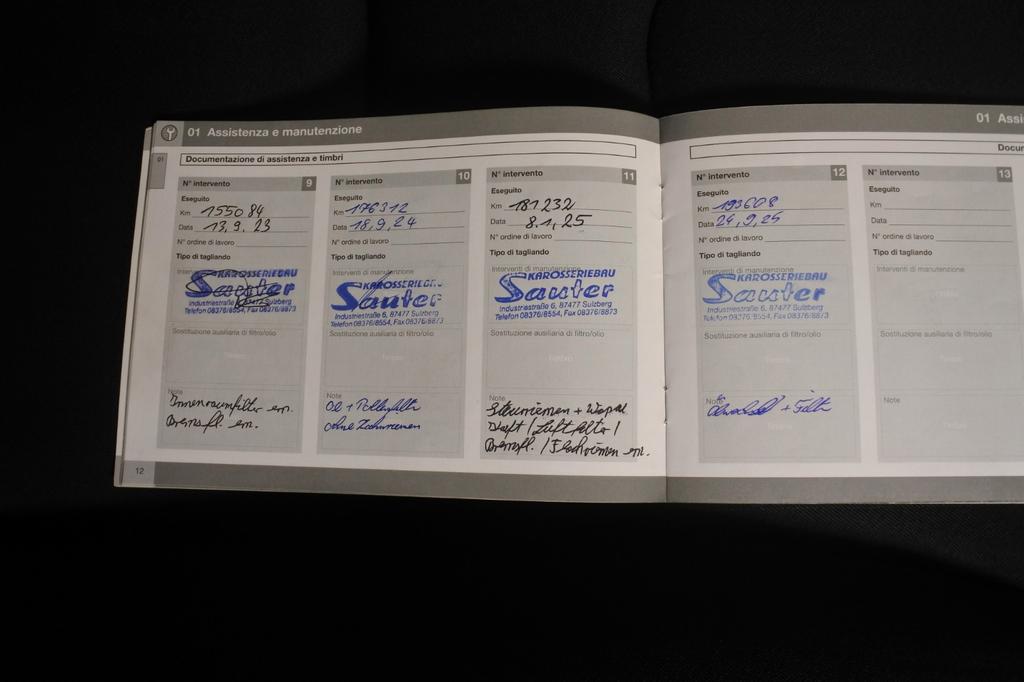 01 Assistenza e manutenzione
01
Documentazione di assistenza e timbri
N° intervento 9
Eseguito
Km 155084
Data 13.9.23
N° ordine di lavoro
Tipo di tagliando
KAROSSERIEBAU
Sauter
Industriestraße 6, 87477 Sulzberg
Telefon 08376/8554, Fax 08376/8873
Sostituzione ausiliaria di filtro/olio
Timbro
Note
Innenraumfilter ern.
Bremsfl. ern.
N° intervento 10
Eseguito
Km 176312
Data 18.9.24
N° ordine di lavoro
Tipo di tagliando
Interventi di manutenzione
KAROSSERIEBAU
Sauter
Industriestraße 6, 87477 Sulzberg
Telefon 08376/8554, Fax 08376/8873
Sostituzione ausiliaria di filtro/olio
Timbro
Note
Öl + Pollenfilter
ohne Zahnriemen
N° intervento 11
Eseguito
Km 181232
Data 8.1.25
N° ordine di lavoro
Tipo di tagliando
Interventi di manutenzione
KAROSSERIEBAU
Sauter
Industriestraße 6, 87477 Sulzberg
Telefon 08376/8554, Fax 08376/8873
Sostituzione ausiliaria di filtro/olio
Timbro
Note
+ Wapu
/ Luftfilter /
Bremsfl. / Flachriemen ern.
12
01 Assi
Docum
N° intervento 12
Eseguito
Km 193608
Data 24.9.25
N° ordine di lavoro
Tipo di tagliando
Interventi di manutenzione
KAROSSERIEBAU
Sauter
Industriestraße 6, 87477 Sulzberg
Telefon 08376/8554, Fax 08376/8873
Sostituzione ausiliaria di filtro/olio
Timbro
Note
Ölwechsel + Filter
Timbro
N° intervento 13
Eseguito
Km
Data
N° ordine di lavoro
Tipo di tagliando
Interventi di manutenzione
Sostituzione ausiliaria di filtro/olio
Timbro
Note